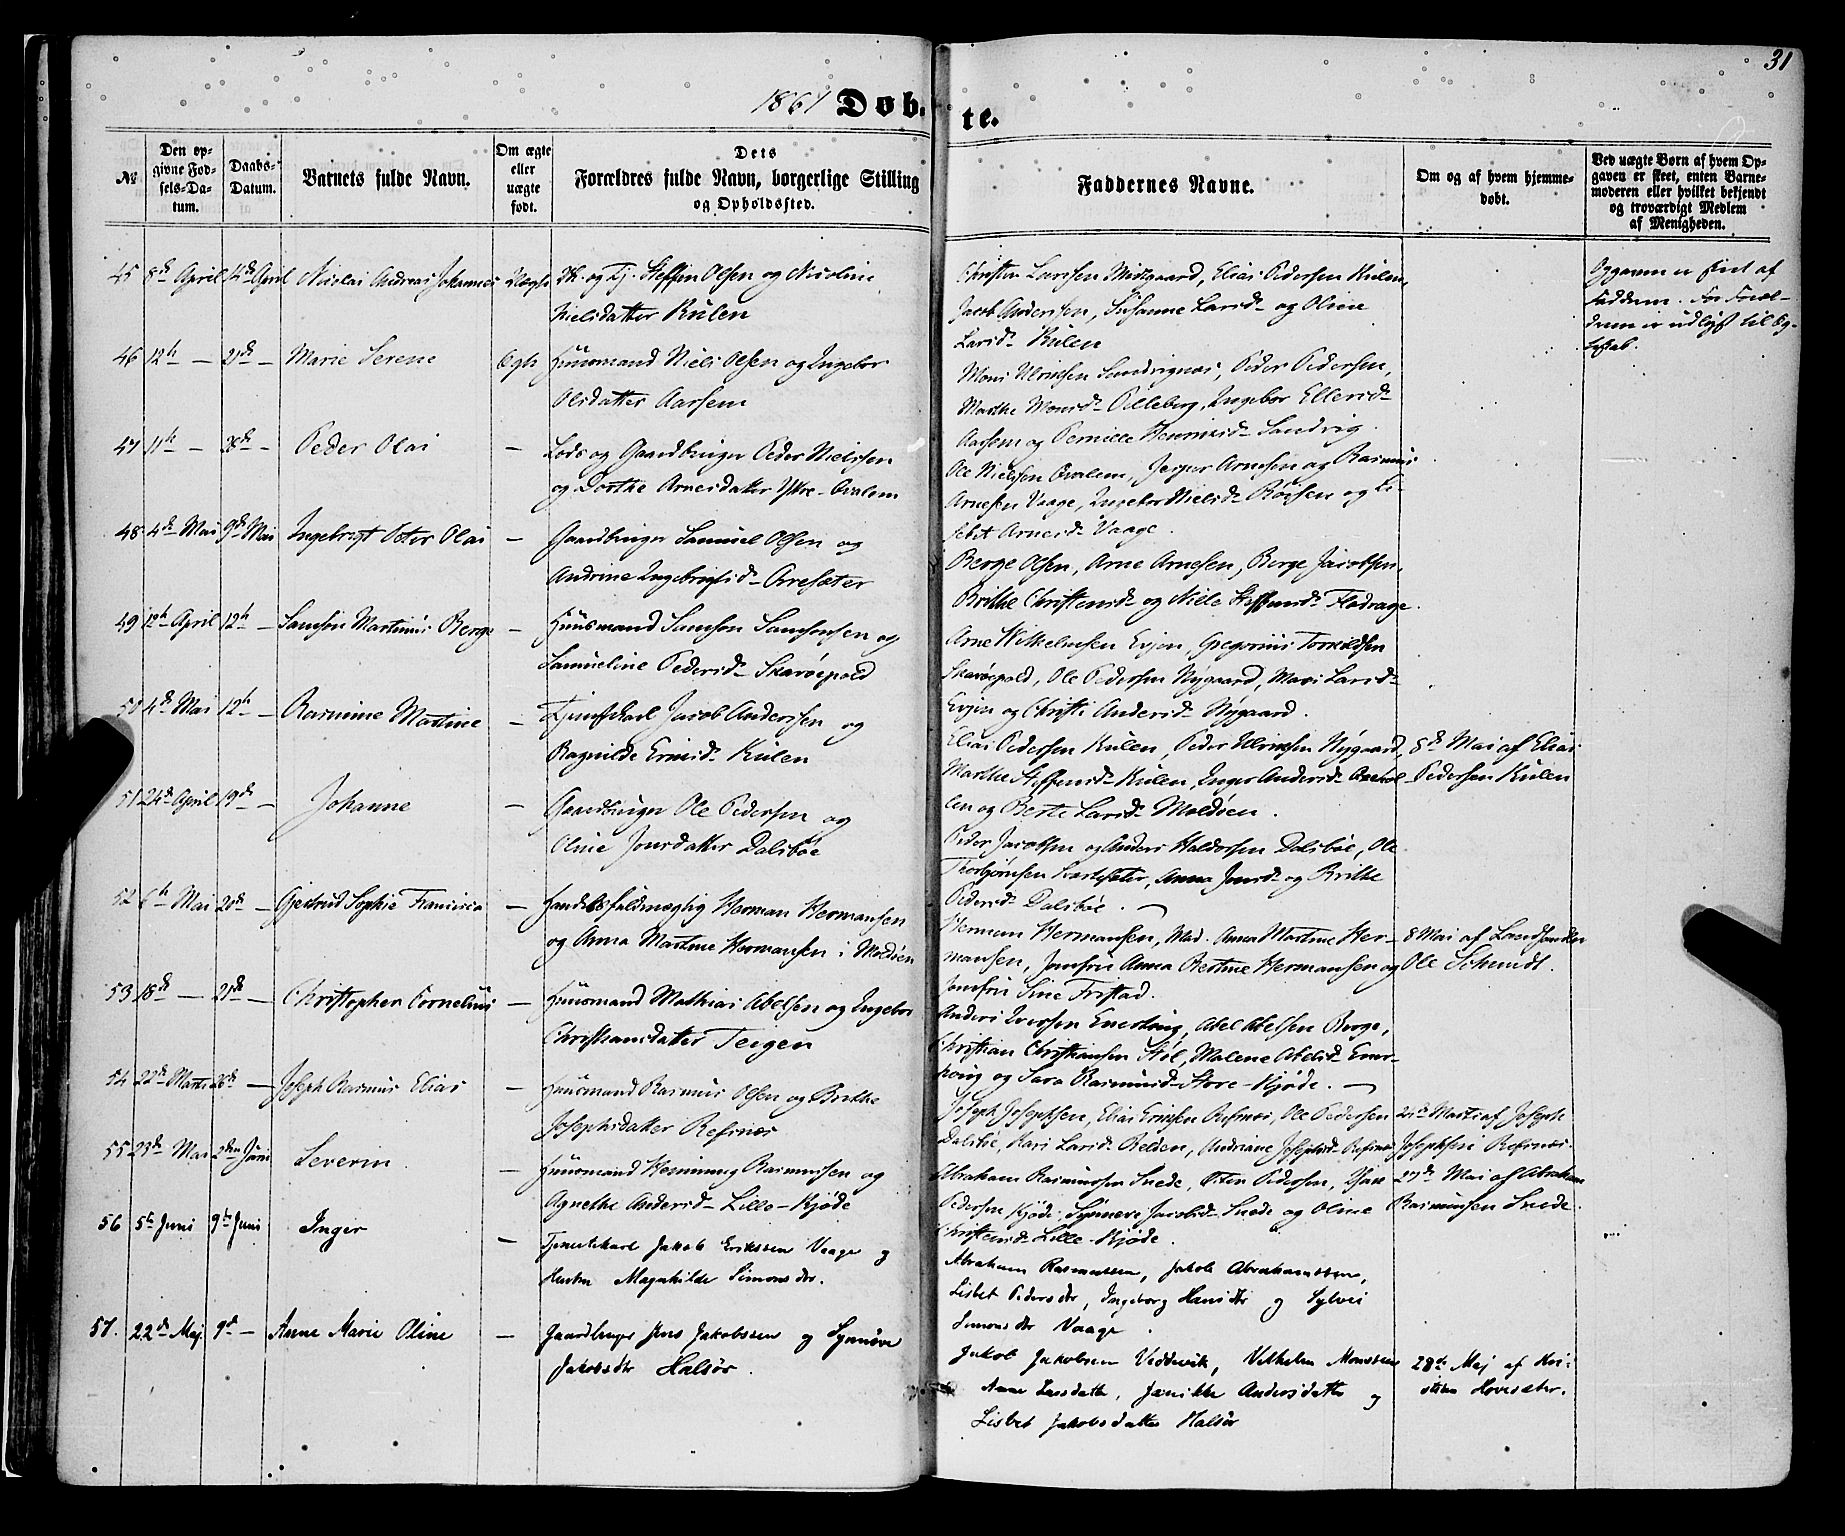 31
1861 Døb- te.
№
Den op-
givne Fød-
sels-Da-
tum.
Daabs-
Datum.
Barnets fulde Navn.
Om ægte
eller
uægte
født.
Dets
Forældres fulde Navn, borgerlige Stilling
og Opholdssted.
Faddernes Navne.
Om og af hvem hjemme-
døbt.
Ved uægte Børn af hvem Op-
gaven er skeet, enten Barne-
moderen eller hvilket bekjendt
og troværdigt Medlem
af Menigheden.
45 8de April 14de April Nicolai Andreas Johannes Uægte Uk. og Pj. Steffen Olsen og Nicoline
Nielsdatter Kulen
Christen Larssen Midtgaard, Elias Pedersen Kulen,
Jacob Anderssen, Susanne Larsd. og Oline
Larsd. Kulen
Opgaven er skeet af
Fadderne. For Foræl-
drene er udlyst til Æg-
teskab.
46 12te — 21de — Marie Serene Ægte Huusmand Niels Olsen og Ingebor
Olsdatter Aarsem
Mons Ulrinsen Sandvignæs, Peder Pedersen,
Marthe Monsd. Pilleberg, Ingebor Ellersd.
Aarsem og Pernille Henrinesd. Sandvig.
47 11te — 28de — Peder Olai — Lods og Gaardbruger Peder Nielssen
og Dorthe Arnesdatter Ytre-Qvalem
Ole Nielssen Qvalem, Jesper Arnesen og Rasmus
Arnesen Vaage, Ingebor Nielsd. Røysen og Li-
sebet Arnesd. Vaage.
48 4de Mai 9de Mai Ingebrigt Peter Olai — Gaardbruger Samuel Olsen og
Andrine Ingebrigtsd. Arresæter
Berge Olsen, Arne Arnesen, Berge Jacobsen,
Brithe Christensd. og Nille Steffensd. Fladrage.
49 18de April 12te — Samson Martinus Berge — Huusmand Samson Samsonsen og
Samueline Pedersd. Skarøepold
Arne Wilhelmsen Evjen, Gregorius Torkildsen
Skarøepold, Ole Pedersen Nygaard, Mari Larsd.
Evjen og Christi Andersd. Nygaard.
50 4de Mai 12te — Rasmine Martine — Tjenestekarl Jacob Anderssen og
Ragnilde Ernsd. Kulen
Elias Pedersen Kulen, Peder Ulrinsen Nygaard,
Marthe Steffensd. Kulen, Inger Andersd.
og Berte Larsd. Moldøen.
8de Mai af Elias
Pedersen Kulen
51 24de April 19de — Johanne — Gaardbruger Ole Pedersen og
Oline Jonsdatter Dalsbøe
Peder Jacobsen og Anders Haldorsen Dalsbøe, Ole
Thorbjørnsen Lartesæter, Anna Jonsd. og Brithe
Pedersd. Dalsbøe.
52 6te Mai 20de — Gjertrud Sophie Francisca — Handelsfuldmægtig Herman Hermansen
og Anna Martine Hermansen i Moldøen
Herman Hermansen, Mad. Anna Martine Her-
mansen, Jomfru Anna Bertine Hermansen og
Jomfru Sine Fristad.
8 Mai af Landhandler
Ole Schmidt.
53 18de — 21de — Christopher Cornelius — Huusmand Mathias Abelsen og Ingebor
Christiansdatter Teigen
Anders Iversen Enerhoug, Abel Abelsen Berge,
Christian Christiansen Støl, Malene Abelsd. Ener-
houg og Sara Rasmusd. Store-Kjøde.
54 22de Marts 26de — Joseph Rasmus Elias — Huusmand Rasmus Olsen og Brithe
Josephsdatter Refsnæs
Joseph Josephsen, Elias Ernsen Refsnæs, Ole Pedersen
Dalsbøe, Kari Larsd. Relden, Andriane Josephsd. Refsnæs
24de Marts af Joseph
Josephsen Refsnæs.
55 23de Mai 2den Juni Severin. — Huusmand Henning Rasmussen og
Agnethe Andersd. Lille-Kjøde
Abraham Rasmussen Snede, Sten Pedersen, Hans
Pedersen Kjøde, Synneve Jacobsd. Snede og Oline
Christensd. Lille-Kjøde.
27de Mai af Abraham
Rasmussen Snede.
56 5te Juni 9de Juni Inger — Tjenestekarl Jakob Erikssen Vaage og
Hustru Magnhilde Simonsdtr.
Abraham Rasmussen, Jakob Abrahamssen,
Lisbet Pedersdtr, Ingeborg Hansdtr og Sylvei
Simonsdtr Vaage.
57. 22de Maj 9de — Anne Marie Oline — Gaardbruger Jens Jakobssen og Synnøve
Jakobsdtr Halsør.
Jakob Jakobsen Vedvik, Vilhelm Monssen
Anne Larsdatter, Jannikke Andersdatter og
Lisbet Jakobsdatter Halsør
28de Maj af Kri-
stian Hovesæter.